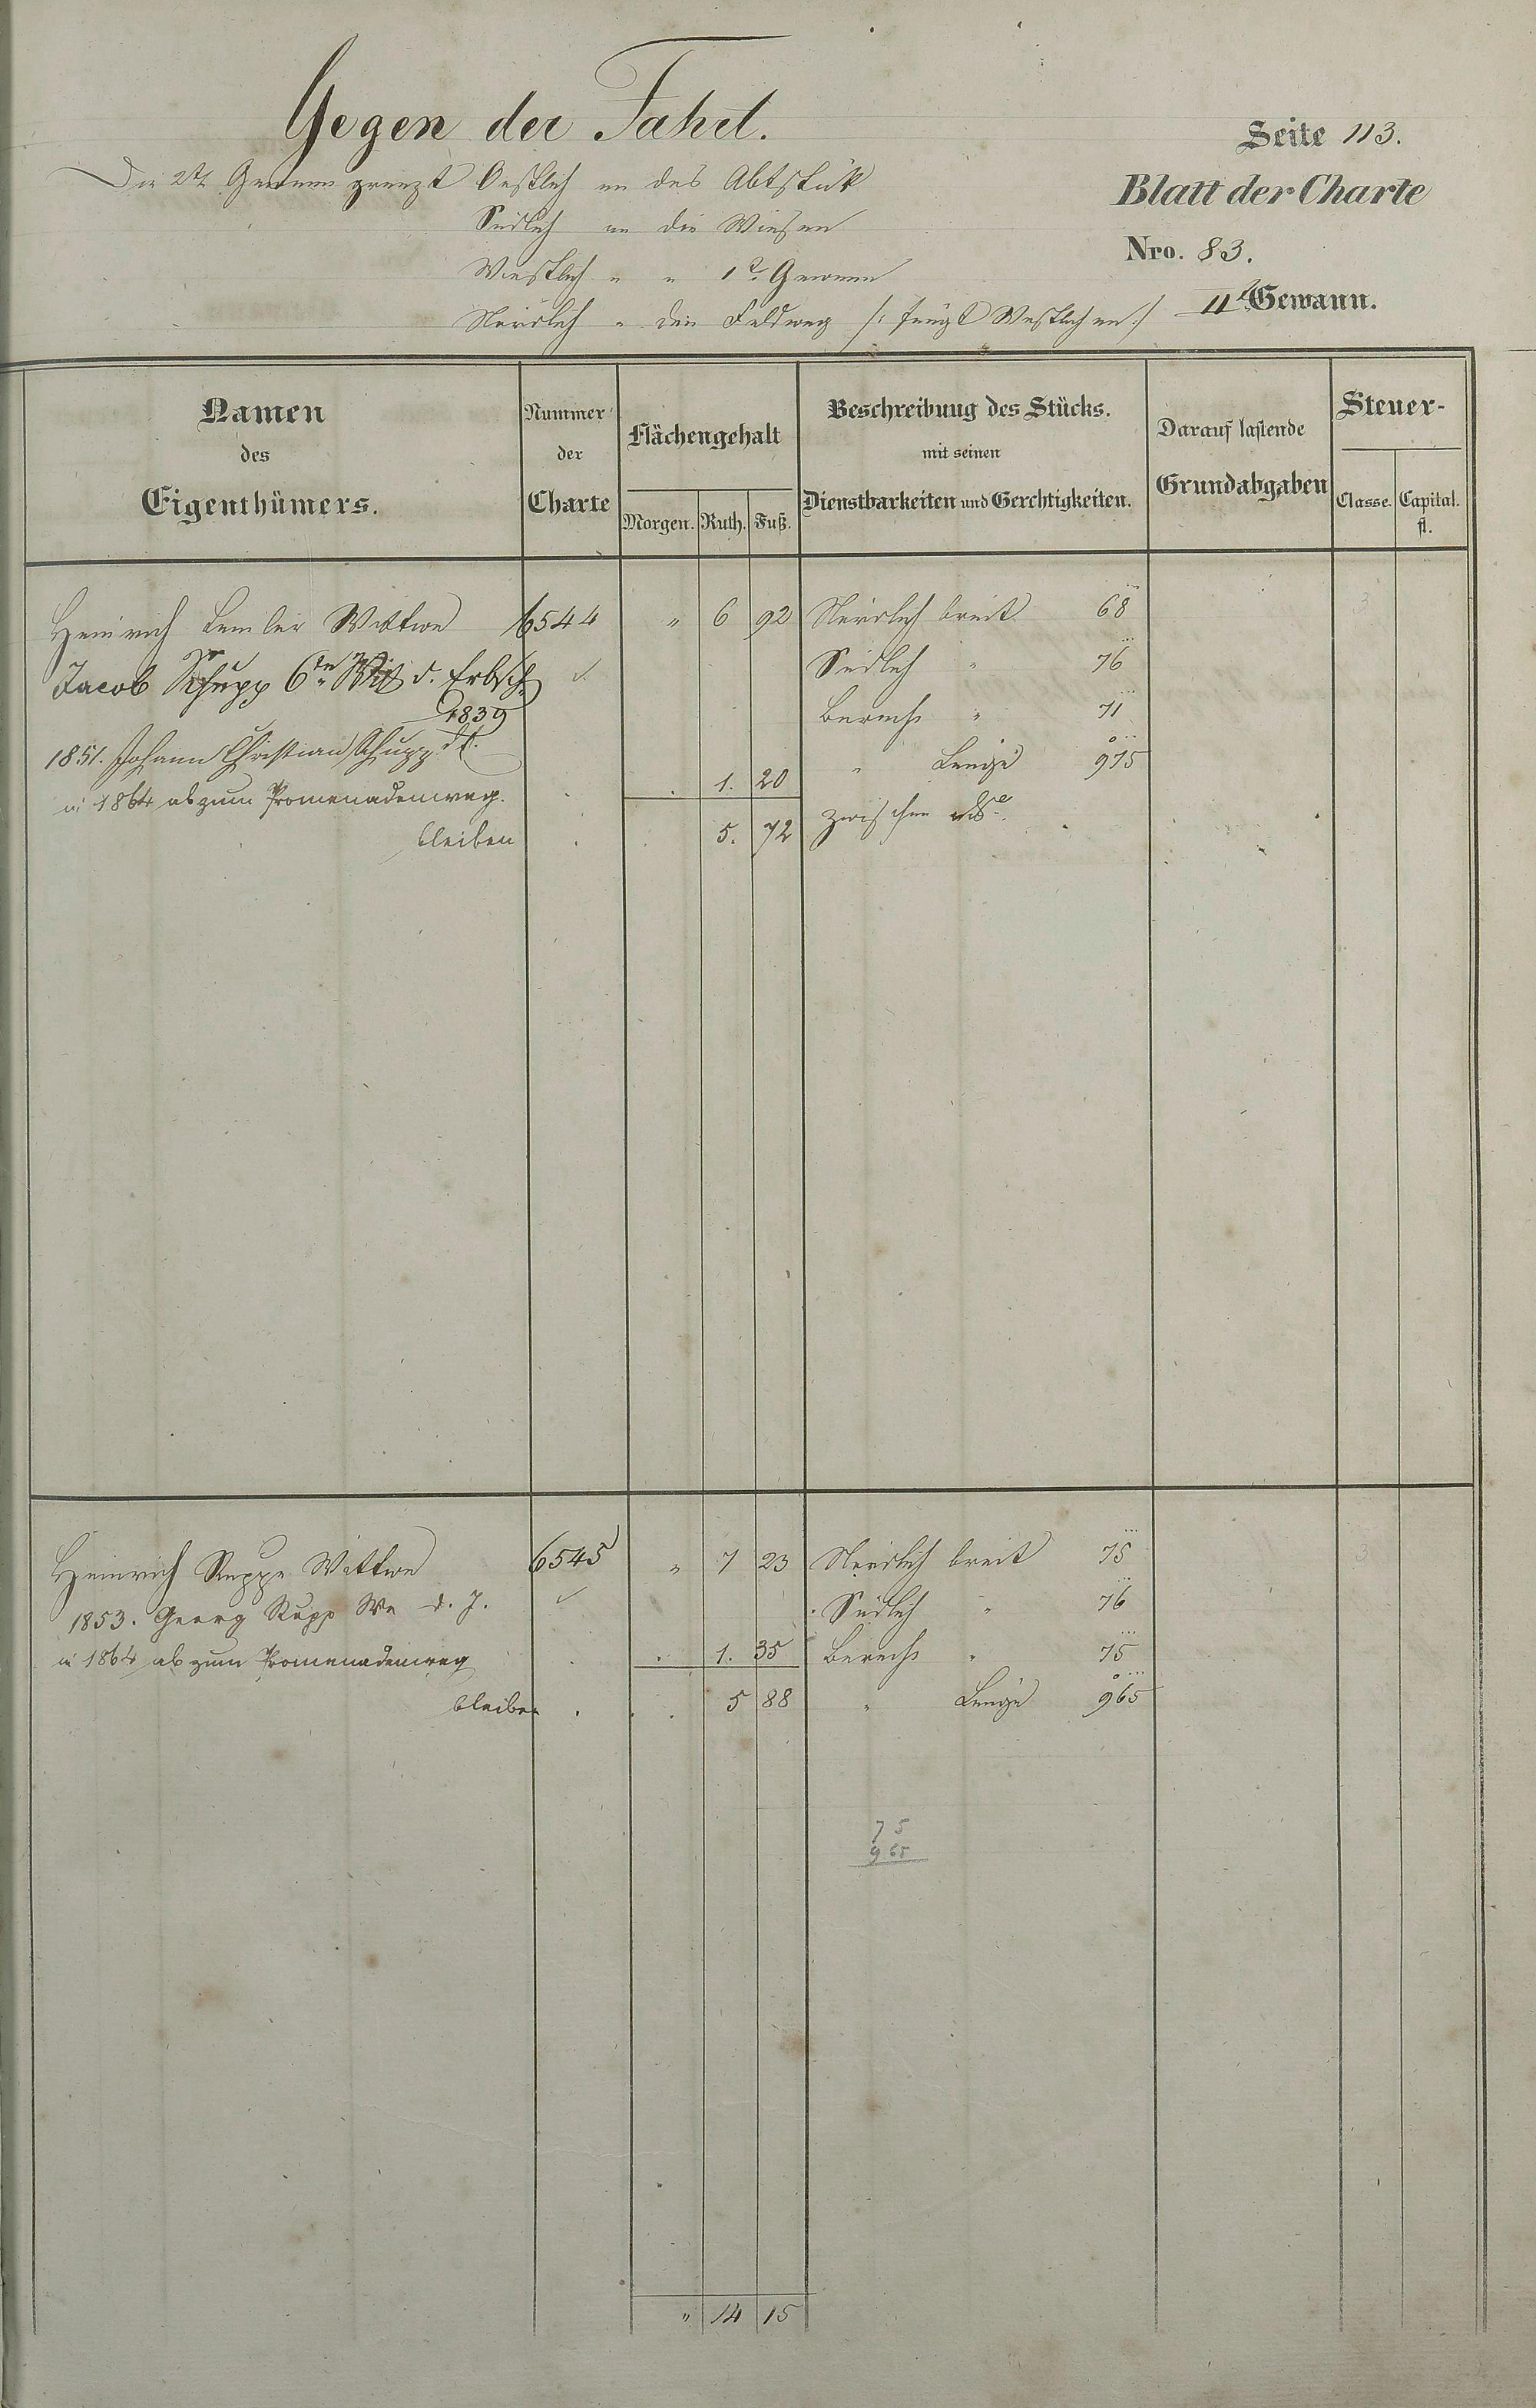 Gegen der Fahrt.
Seite 113.
Die 2te Gewann grenzt Oestlich an das Abtstük
Blatt der Charte
Südlich an die Wiesen
Nro. 83.
Westlich " " 1te Gewann
Nördlich " den Feldweg /: fängt Westlich an :/
IIte Gewann.
Namen des Eigenthümers.
Nummer der Charte
Flächengehalt
Morgen. Ruth. Fuß.
Beschreibung des Stücks. mit seinen Dienstbarkeiten und Gerchtigkeiten.
Darauf lastende Grundabgaben
Steuer-
Classe. Capital. fl.
Heinrich Wittwe 6544 " 6 92 Nördlich breit 68 3
Jacob Schupp 6te d. Erbsch. Südlich " 76
1839 Berechn. " 71
1851. Johann Christian Schupp
" Länge 975
1. 20
in 1864 ab zum Promenadenweg.
zwischen
bleiben 5. 72
Heinrich Rupps Wittwe 6545 " 7 23 Nördlich breit 75 3
1853. Georg Rupp We d. J. Südlich " 76
in 1864 ab zum Promenadenweg 1. 35 Berechn. " 75
bleiben 5 88 " Länge 965
75
965
" 14 15